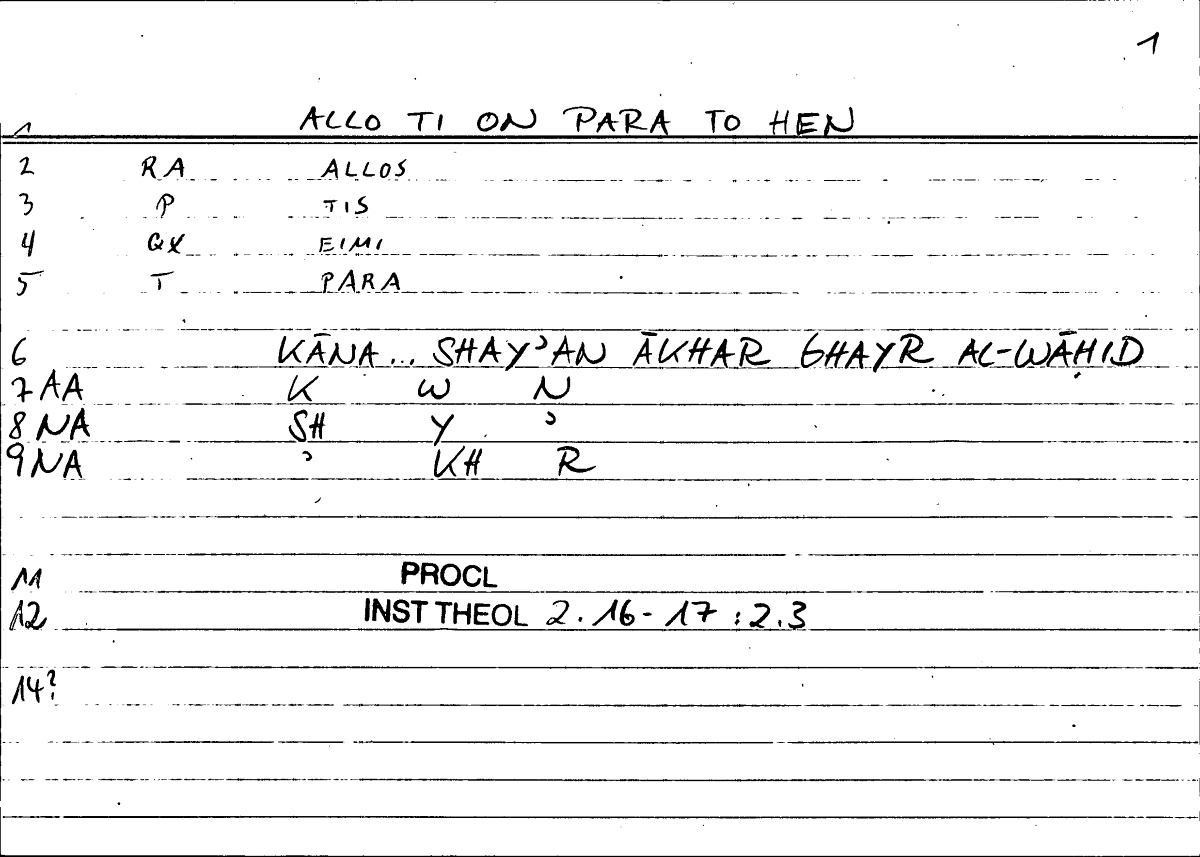 1
1 ALLO TI ON PARA TO HEN
2 RA ALLOS
3 P TIS
4 GX EIMI
5 T PARA
6 KĀNA... SHAYʾAN ĀKHAR GHAYR AL-WĀḤID
7 AA K W N
8 NA SH Y ʾ
9 NA ʾ KH R
11 PROCL
12 INST THEOL 2.16-17:2.3
14?